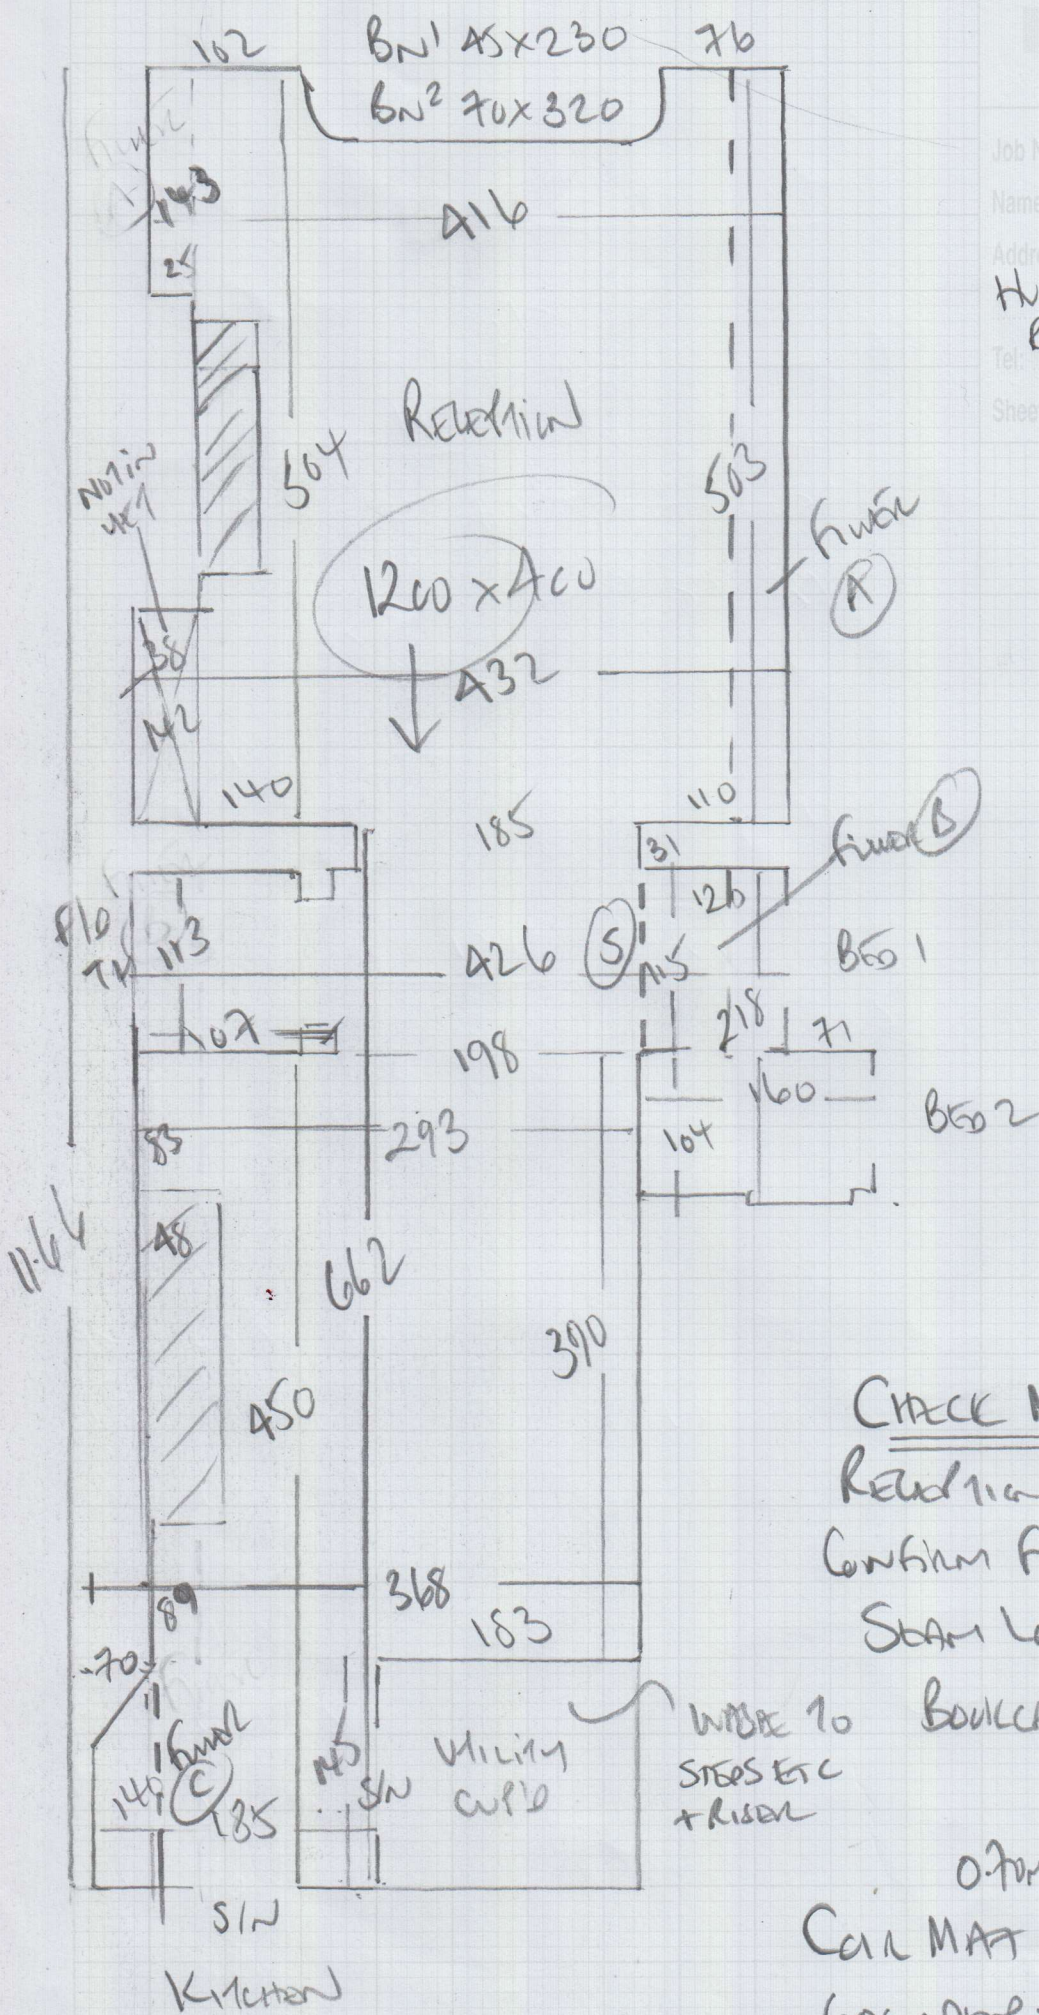 102
BN¹ 45x230
76
BN² 70x320
Job N
Name
Addre
Tel:
Shee
143
416
25
RECEPTION
504
503
NOT IN
YET
FILLER
A
1200 x 400
38
432
142
140
110
185
FILLER B
31
126
113
426
S
115
BED 1
107
198
218
71
160
BED 2
83
293
104
48
11.64
662
390
450
CHECK M
RECEPTION
CONFIRM F
SEAM L
89
368
183
70
FILLER
C
140
185
145
S/N
UTILITY
CUP'D
WASTE TO
STEPS ETC
+ RISER
0.70m
COIR MAT
S/N
KITCHEN